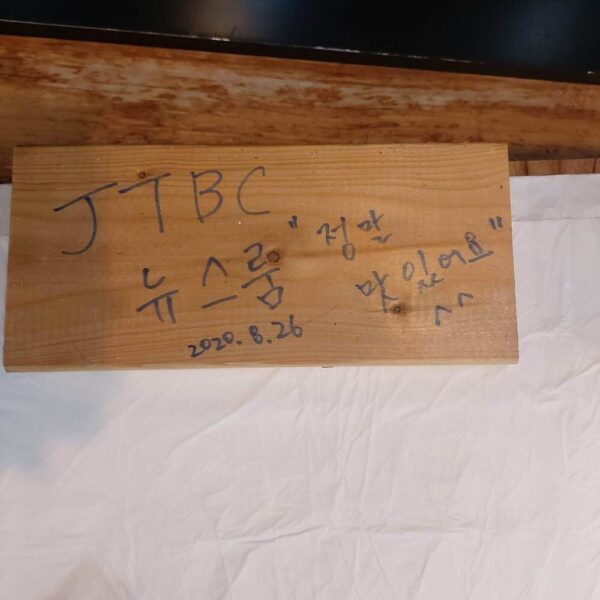 JTBC
뉴스룸
2020.8.26
"정말
맛있어요"
^^